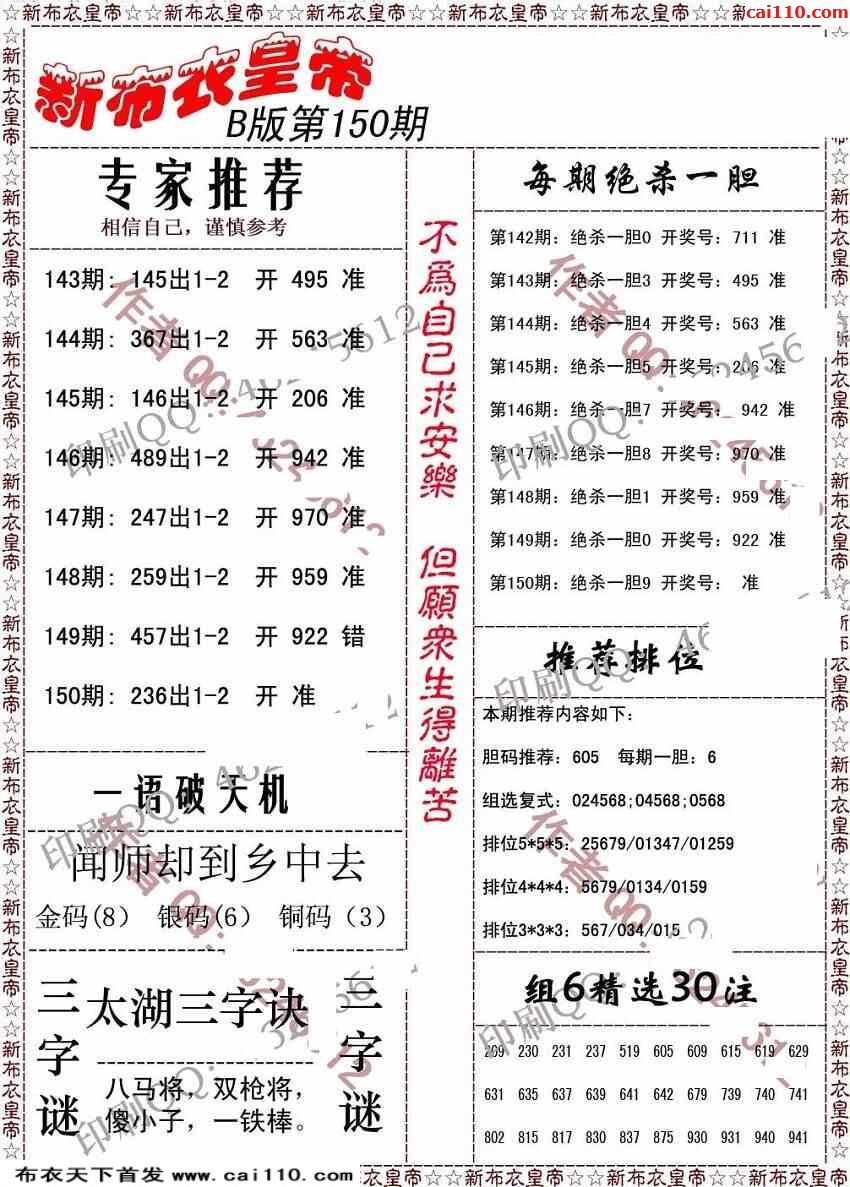 ☆☆新布衣皇帝☆☆新布衣皇帝☆☆新布衣皇帝☆☆新布衣皇帝☆☆新布衣皇帝☆☆新
cai110.com
新布衣皇帝
B版第150期
专家推荐
相信自己，谨慎参考
143期: 145出1-2 开 495 准
144期: 367出1-2 开 563 准
145期: 146出1-2 开 206 准
146期: 489出1-2 开 942 准
147期: 247出1-2 开 970 准
148期: 259出1-2 开 959 准
149期: 457出1-2 开 922 错
150期: 236出1-2 开 准
一语破天机
闻师却到乡中去
金码(8) 银码(6) 铜码（3）
三字谜
太湖三字诀
八马将，双枪将，
傻小子，一铁棒。
三字谜
不爲自己求安樂 但願衆生得離苦
每期绝杀一胆
第142期: 绝杀一胆0 开奖号: 711 准
第143期: 绝杀一胆3 开奖号: 495 准
第144期: 绝杀一胆4 开奖号: 563 准
第145期: 绝杀一胆5 开奖号: 206 准
第146期: 绝杀一胆7 开奖号: 942 准
第147期: 绝杀一胆8 开奖号: 970 准
第148期: 绝杀一胆1 开奖号: 959 准
第149期: 绝杀一胆0 开奖号: 922 准
第150期: 绝杀一胆9 开奖号: 准
推荐排位
本期推荐内容如下:
胆码推荐: 605 每期一胆: 6
组选复式: 024568;04568;0568
排位5*5*5: 25679/01347/01259
排位4*4*4: 5679/0134/0159
排位3*3*3: 567/034/015
组6精选30注
209 230 231 237 519 605 609 615 619 629
631 635 637 639 641 642 679 739 740 741
802 815 517 830 837 875 930 931 940 941
布衣天下首发 www.cai110.com
衣皇帝☆☆新布衣皇帝☆☆新布衣皇帝☆☆新布衣皇帝☆☆